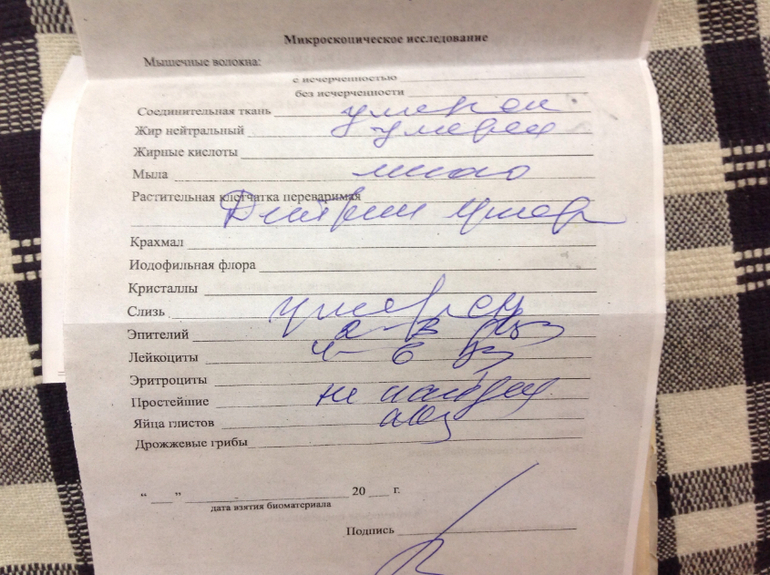 Микроскопическое исследование
Мышечные волокна:
с исчерченностью
без исчерченности
Соединительная ткань умерен
Жир нейтральный умерен
Жирные кислоты
Мыла много
Растительная клетчатка переваримая
Детрит умер
Крахмал
Иодофильная флора
Кристаллы
Слизь умерен
Эпителий 2-3
Лейкоциты 4-6
Эритроциты
Простейшие не найдены
Яйца глистов
Дрожжевые грибы
“ ___ ” ____________ 20 ___ г.
дата взятия биоматериала
Подпись